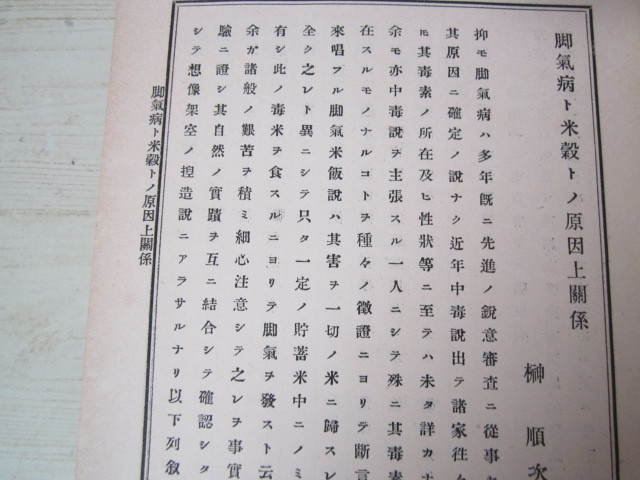 脚氣病ト米穀トノ原因上關係
榊順次
抑モ脚氣病ハ多年既ニ先進ノ鋭意審査ニ從事
其原因ニ確定ノ說ナク近年中毒說出テ諸家往々
其毒素ノ所在及ヒ性狀等ニ至テハ未タ詳カナ
余モ亦中毒說ヲ主張スル一人ニシテ殊ニ其毒素
在スルモノナルコトヲ種々ノ徵證ニヨリテ斷言
來唱フル脚氣米飯說ハ其害ヲ一切ノ米ニ歸スレ
全ク之レト異ニシテ只タ一定ノ貯蓄米中ニノミ
有シ此ノ毒米ヲ食スルニヨリテ脚氣ヲ發スト云
余ガ諸般ノ艱苦ヲ積ミ細心注意シテ之レヲ事實
驗ニ證シ其自然ノ實蹟ヲ互ニ結合シテ確認シタ
シテ想像架空ノ揑造說ニアラサルナリ以下列敘
脚氣病ト米穀トノ原因上關係